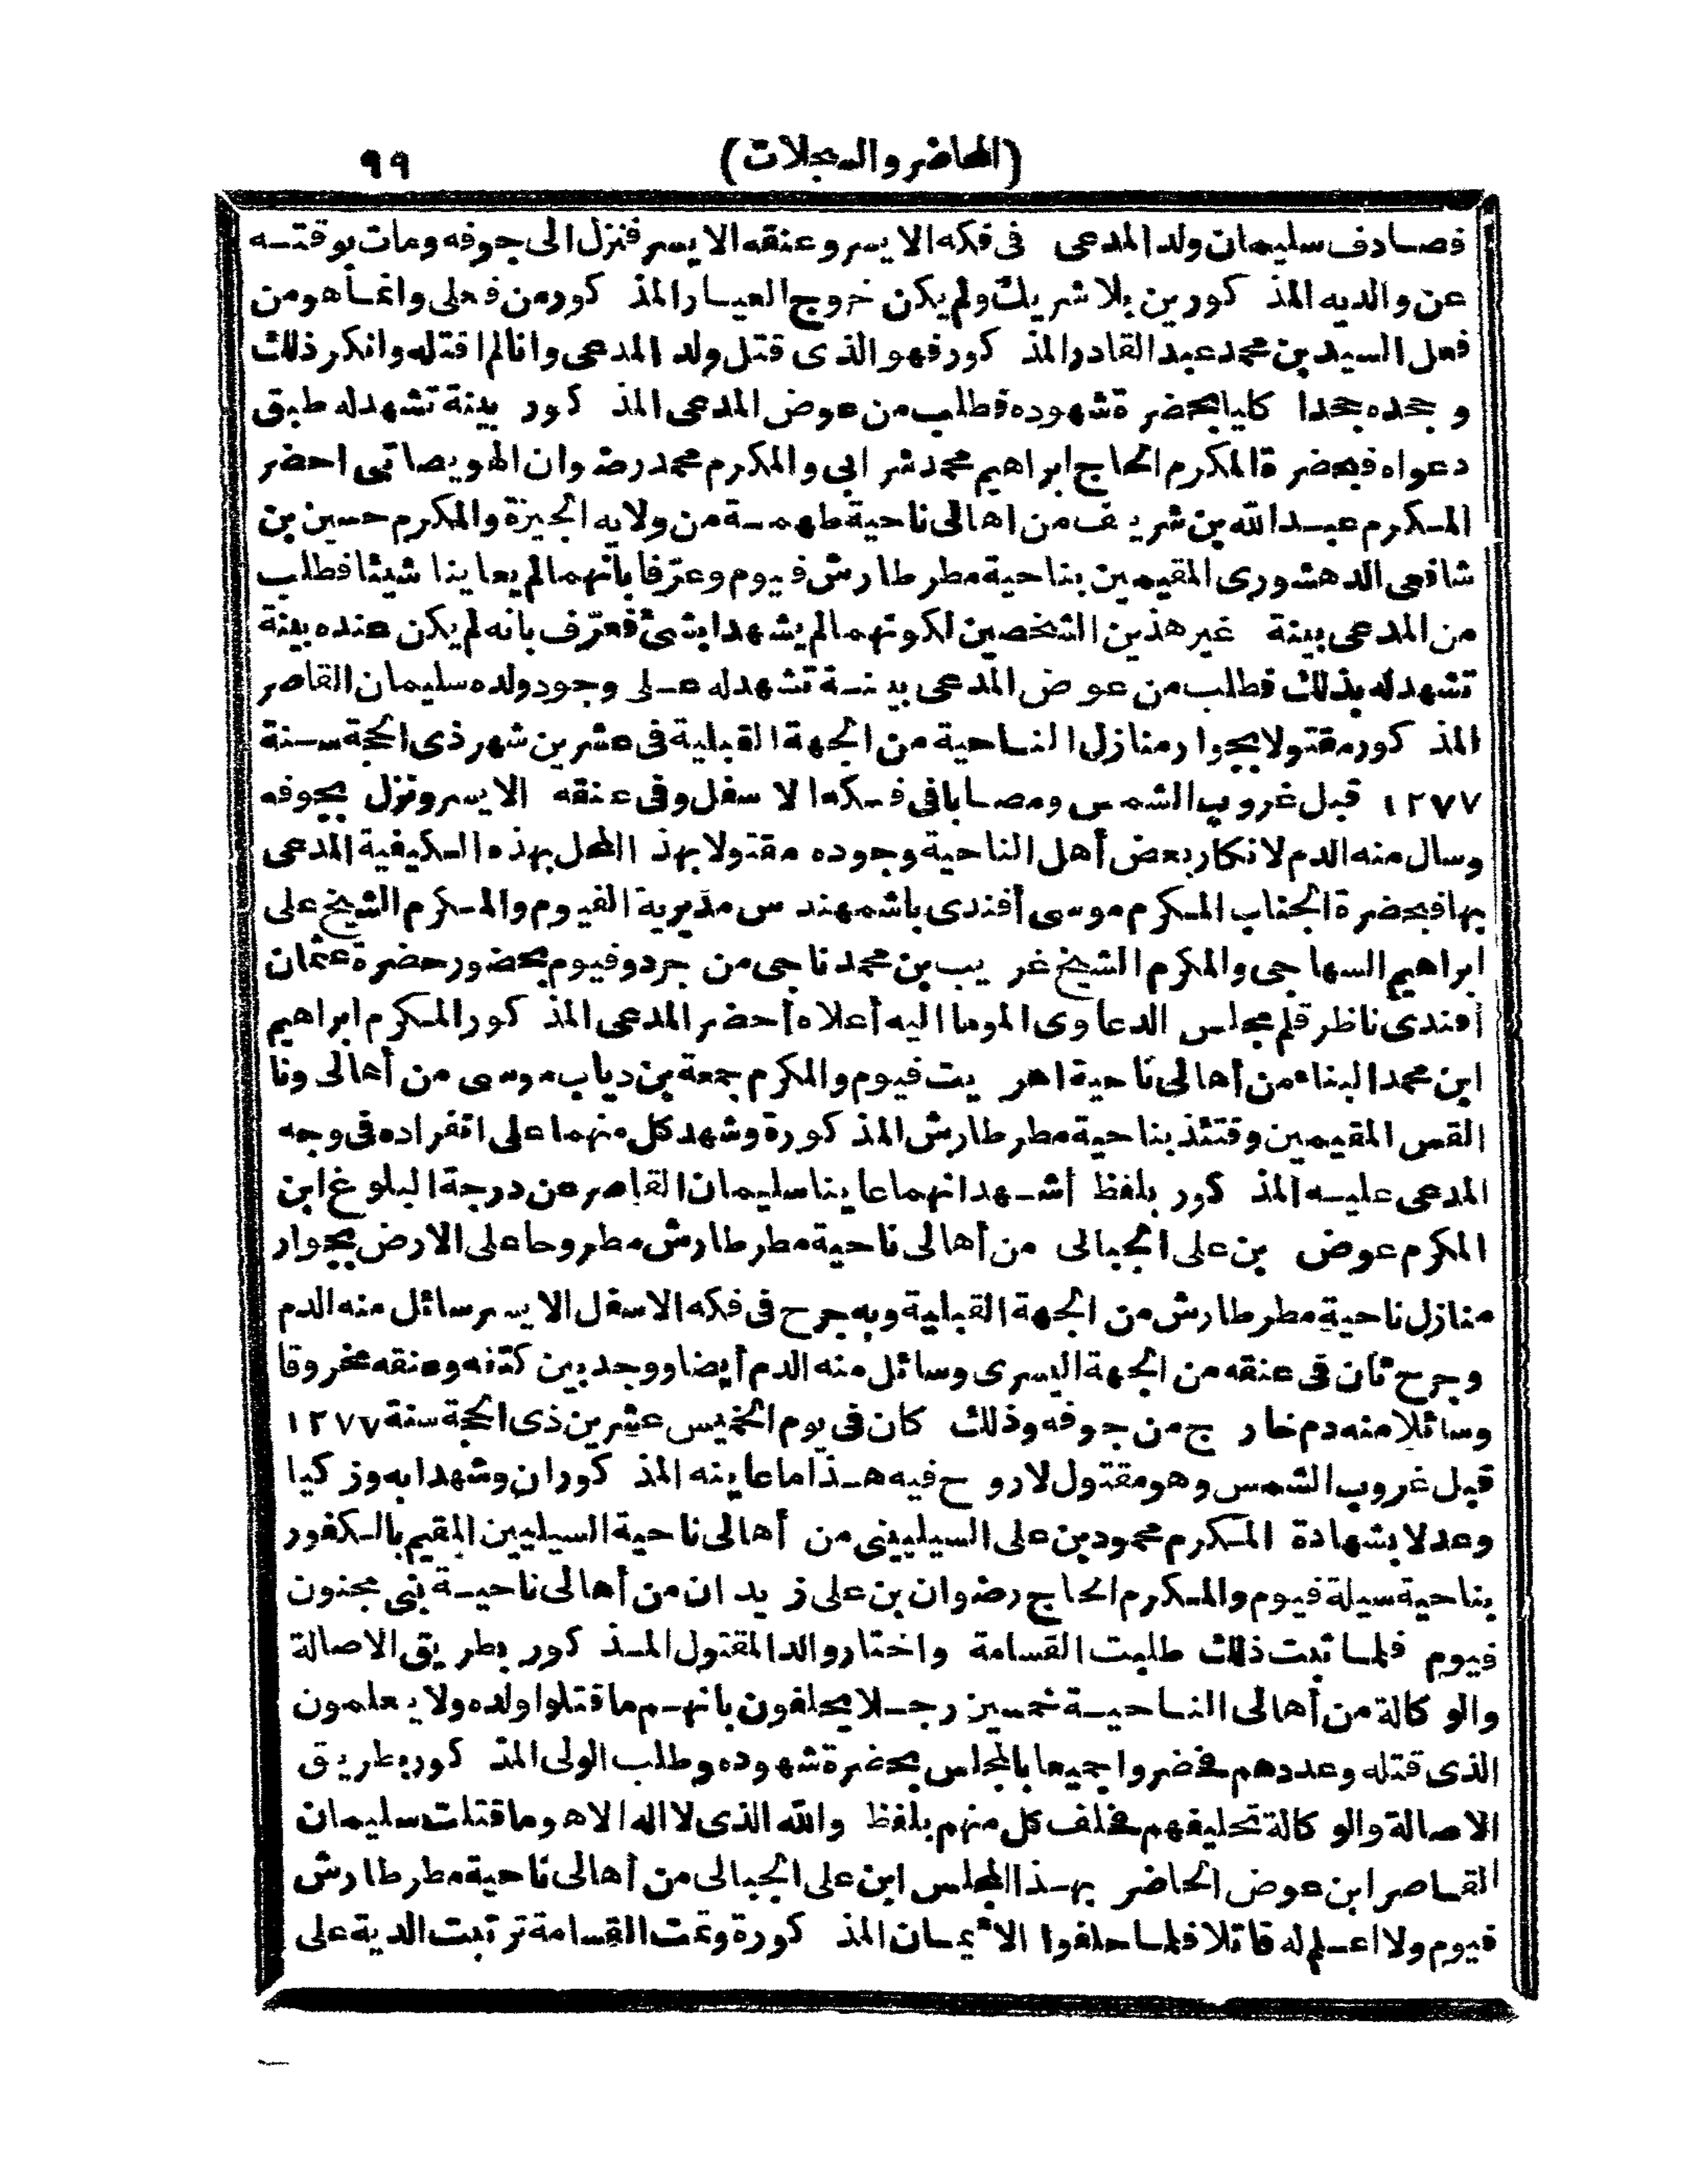 (المحاضر والسجلات) ٩٩
فصادف سليمان ولد المدعى فى فكه الايسر وعنقه الايسر فنزل الى جوفه ومات بوقته
عن والديه المذكورين بلا شريك ولم يكن خروج العيار المذكور من فعلى وانما هو من
فعل السيد بن محمد عبد القادر المذكور فهو الذى قتل ولد المدعى وانا لم اقتله وانكر ذلك
وجحده جحدا كليا بحضرة شهوده فطلب من عوض المدعى المذكور بينة تشهد له طبق
دعواه فبحضرة المكرم الحاج ابراهيم محمد شرابى والمكرم محمد رضوان الهويصاتى احضر
المكرم عبد الله بن شريف من اهالى ناحية طهمسة من ولاية الجيزة والمكرم حسين بن
شافعى الدهشورى المقيمين بناحية مطرطارش فيوم وعرّفا بأنهما لم يعاينا شيئا فطلب
من المدعى بينة غير هذين الشخصين لكونهما لم يشهدا بشئ فعرّف بانه لم يكن عنده بينة
تشهد له بذلك فطلب من عوض المدعى بينة تشهد له على وجود ولده سليمان القاصر
المذكور مقتولا بجوار منازل الناحية من الجهة القبلية فى عشرين شهر ذى الحجة سنة
١٢٧٧ قبل غروب الشمس ومصابا فى فكه الاسفل وفى عنقه الايسر ونزل بجوفه
وسال منه الدم لانكار بعض أهل الناحية وجوده مقتولا بهذا المحل بهذه الكيفية المدعى
بها فبحضرة الجناب المكرم موسى أفندى باشمهندس مديرية الفيوم والمكرم الشيخ على
ابراهيم السهاجى والمكرم الشيخ غريب بن محمد ناجى من جردو فيوم بحضور حضرة عثمان
أفندى ناظر قلم مجلس الدعاوى الموما اليه أعلاه أحضر المدعى المذكور المكرم ابراهيم
ابن محمد البناء من أهالى ناحية اهريت فيوم والمكرم جمعة بن دياب موسى من أهالى ونا
القس المقيمين وقتئذ بناحية مطرطارش المذكورة وشهد كل منهما على انفراده فى وجه
المدعى عليه المذكور بلفظ أشهد انهما عاينا سليمان القاصر عن درجة البلوغ ابن
المكرم عوض بن على الجبالى من أهالى ناحية مطرطارش مطروحا على الارض بجوار
منازل ناحية مطرطارش من الجهة القبلية وبه جرح فى فكه الاسفل الايسر سائل منه الدم
وجرح ثان فى عنقه من الجهة اليسرى وسائل منه الدم أيضا ووجد بين كتفه وعنقه مخروقا
وسائلا منه دم خارج من جوفه وذلك كان فى يوم الخميس عشرين ذى الحجة سنة ١٢٧٧
قبل غروب الشمس وهو مقتول لا روح فيه هذا ما عاينه المذكوران وشهدا به وزكيا
وعدلا بشهادة المكرم محمود بن على السيلينى من أهالى ناحية السيليين المقيم بالكفور
بناحية سيلة فيوم والمكرم الحاج رضوان بن على زيدان من أهالى ناحية بنى مجنون
فيوم فلما ثبت ذلك طلبت القسامة واختار والد المقتول المذكور بطريق الاصالة
والوكالة من أهالى الناحية خمسين رجلا يحلفون بانهم ما قتلوا ولده ولا يعلمون
الذى قتله وعددهم فحضروا جميعا بالمجلس بحضرة شهوده وطلب الولى المذكور بطريق
الاصالة والوكالة تحليفهم فحلف كل منهم بلفظ والله الذى لا اله الا هو ما قتلت سليمان
القاصر ابن عوض الحاضر بهذا المجلس ابن على الجبالى من أهالى ناحية مطرطارش
فيوم ولا اعلم له قاتلا فلما حلفوا الأيمان المذكورة وتمت القسامة ترتبت الدية على